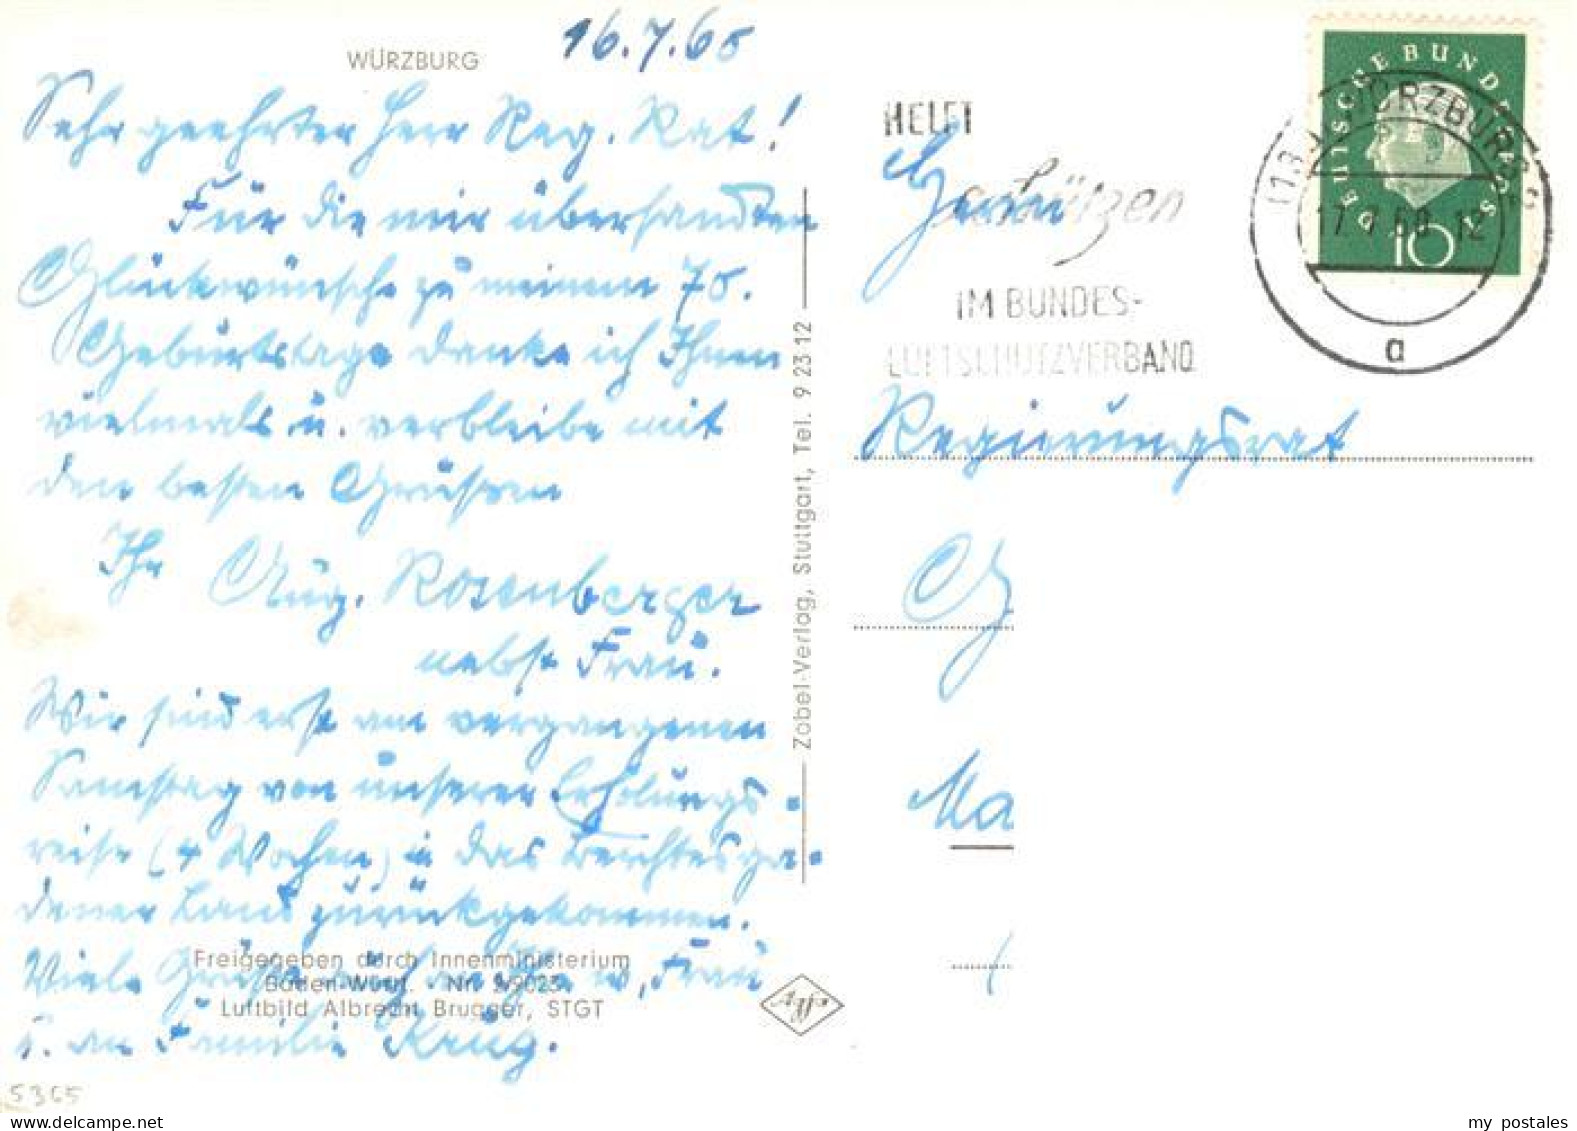 WÜRZBURG
16.7.60
Sehr geehrter Herr Reg. Rat!
Für die mir übersandten
Glückwünsche zu meinem 70.
Geburtstage danke ich Ihnen
vielmals u. verbleibe mit
den besten Grüssen
Ihr Aug. Rosenberger
nebst Frau.
Wir sind erst am vergangenen
Samstag von unserer Erholungs-
reise (4 Wochen) in das Berchtesga-
dener Land zurückgekommen.
Viele Grüsse auch an Ihre w. Frau
u. an Familie Krug.
Freigegeben durch Innenministerium
Baden-Württ. Nr. 2/9023
Luftbild Albrecht Brugger, STGT
5365
Zobel-Verlag, Stuttgart, Tel. 9 23 12
HELFT
schützen
IM BUNDES-
LUFTSCHUTZVERBAND
DEUTSCHE BUNDESPOST
10
WÜRZBURG
17.7.60-12
a
Herrn
Regierungsrat
G
Ma
my postales
www.delcampe.net